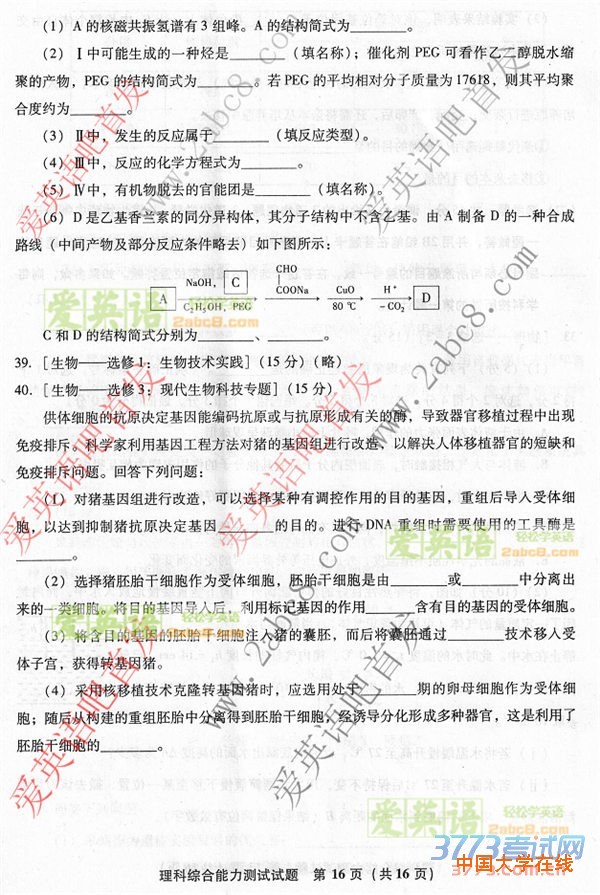 (1) A 的核磁共振氢谱有 3 组峰。A 的结构简式为________。
(2) Ⅰ中可能生成的一种烃是________(填名称);催化剂 PEG 可看作乙二醇脱水缩
聚的产物,PEG 的结构简式为________。若 PEG 的平均相对分子质量为17618,则其平均聚
合度约为________。
(3) Ⅱ中,发生的反应属于________(填反应类型)。
(4) Ⅲ中,反应的化学方程式为________。
(5) Ⅳ中,有机物脱去的官能团是________(填名称)。
(6) D 是乙基香兰素的同分异构体,其分子结构中不含乙基。由 A 制备 D 的一种合成
路线(中间产物及部分反应条件略去)如下图所示:
A NaOH, C C2H5OH, PEG CHO COONa CuO 80 ℃ H+ −CO2 D
C 和 D 的结构简式分别为________、________。
39. [生物——选修 1:生物技术实践](15 分)(略)
40. [生物——选修 3:现代生物科技专题](15 分)
供体细胞的抗原决定基因能编码抗原或与抗原形成有关的酶,导致器官移植过程中出现
免疫排斥。科学家利用基因工程方法对猪的基因组进行改造,以解决人体移植器官的短缺和
免疫排斥问题。回答下列问题:
(1) 对猪基因组进行改造,可以选择某种有调控作用的目的基因,重组后导入受体细
胞,以达到抑制猪抗原决定基因________的目的。进行 DNA 重组时需要使用的工具酶是
________。
(2) 选择猪胚胎干细胞作为受体细胞,胚胎干细胞是由________或________中分离出
来的一类细胞。将目的基因导入后,利用标记基因的作用________含有目的基因的受体细胞。
(3) 将含目的基因的胚胎干细胞注入猪的囊胚,而后将囊胚通过________技术移入受
体子宫,获得转基因猪。
(4) 采用核移植技术克隆转基因猪时,应选用处于________期的卵母细胞作为受体细
胞;随后从构建的重组胚胎中分离得到胚胎干细胞,经诱导分化形成多种器官,这是利用了
胚胎干细胞的________。
理科综合能力测试试题 第 16 页(共 16 页)
爱英语吧首发
www.2abc8.com
爱英语 轻松学英语
2abc8.com
3773考试网
中国大学在线